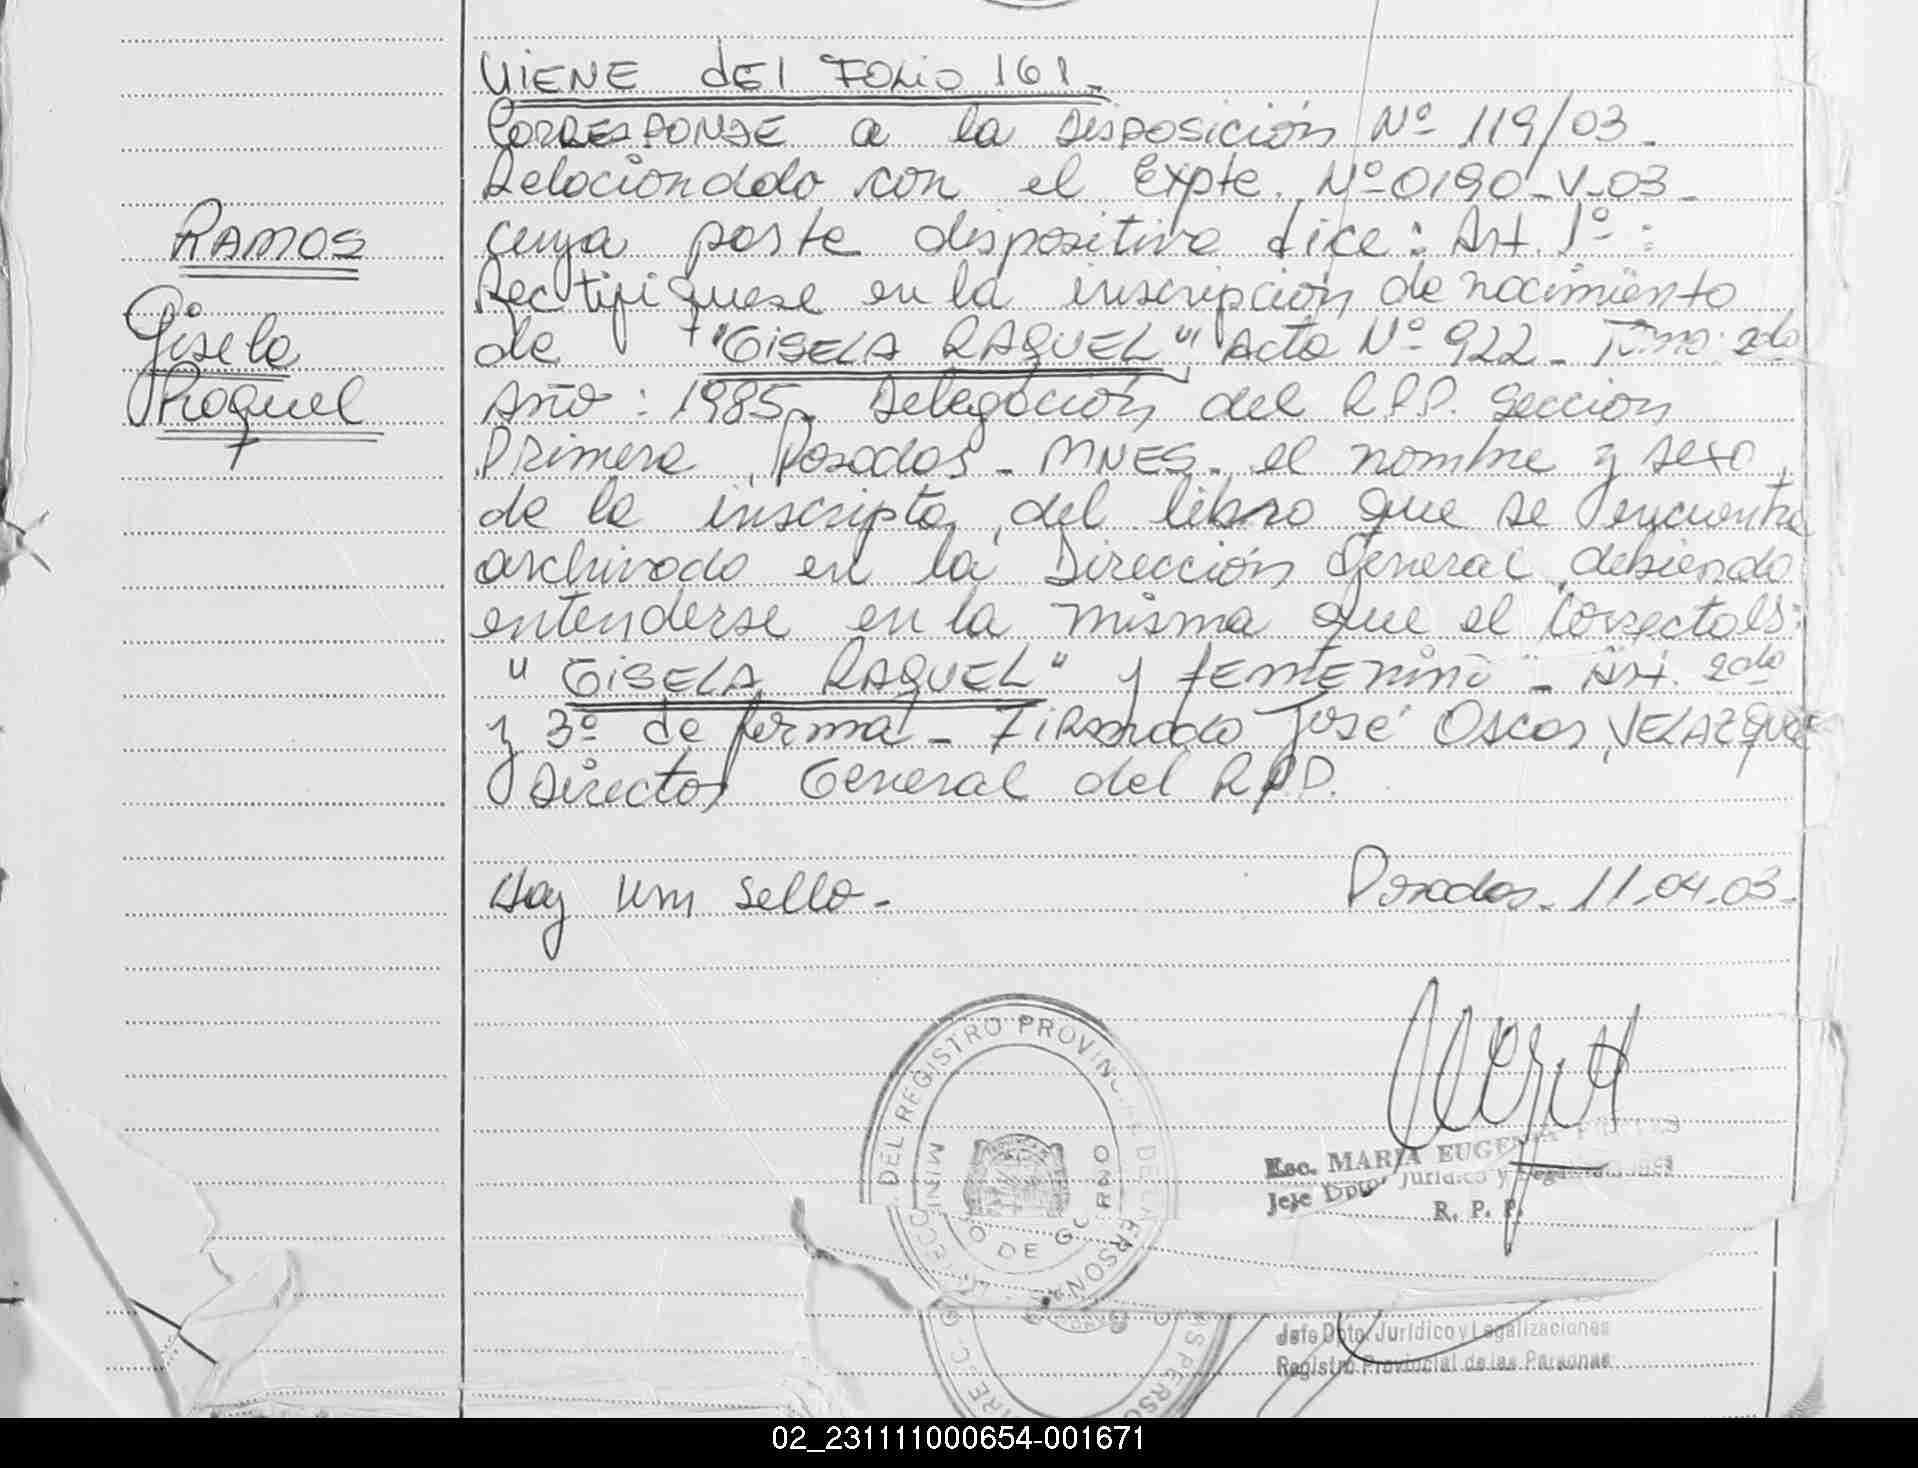 VIENE DEL FOLIO 161-
CORRESPONDE a la Disposición Nº 119/03-
Relacionado con el Expte. Nº 0190-V-03-
cuya parte dispositiva dice: Art. 1º:
RAMOS
Rectifiquese en la inscripción de nacimiento
de "GISELA RAQUEL" Acta Nº 922- Tomo: 2do
Gisela
Raquel
Año: 1985- Delegación del R.P.P. Sección
Primera, Posadas - MNES- el nombre y sexo,
de la inscripta, del libro que se encuentra
archivado en la Dirección General, debiendo
entenderse en la misma que el Correcto es:
"GISELA RAQUEL" y femenino - Art. 2do
y 3º de forma - Firmado José Oscar VELAZQUEZ
Director General del R.P.P.
Hay um sello-
Posadas- 11-04-03-
DEL REGISTRO PROVINCIAL DE LAS PERSONAS
MINISTERIO DE GOBIERNO
Esc. MARIA EUGENIA
Jefe Dpto. Jurídico y Legalizaciones
R. P. P.
Jefe Dpto. Jurídico y Legalizaciones
Registro Provincial de las Personas
02_231111000654-001671